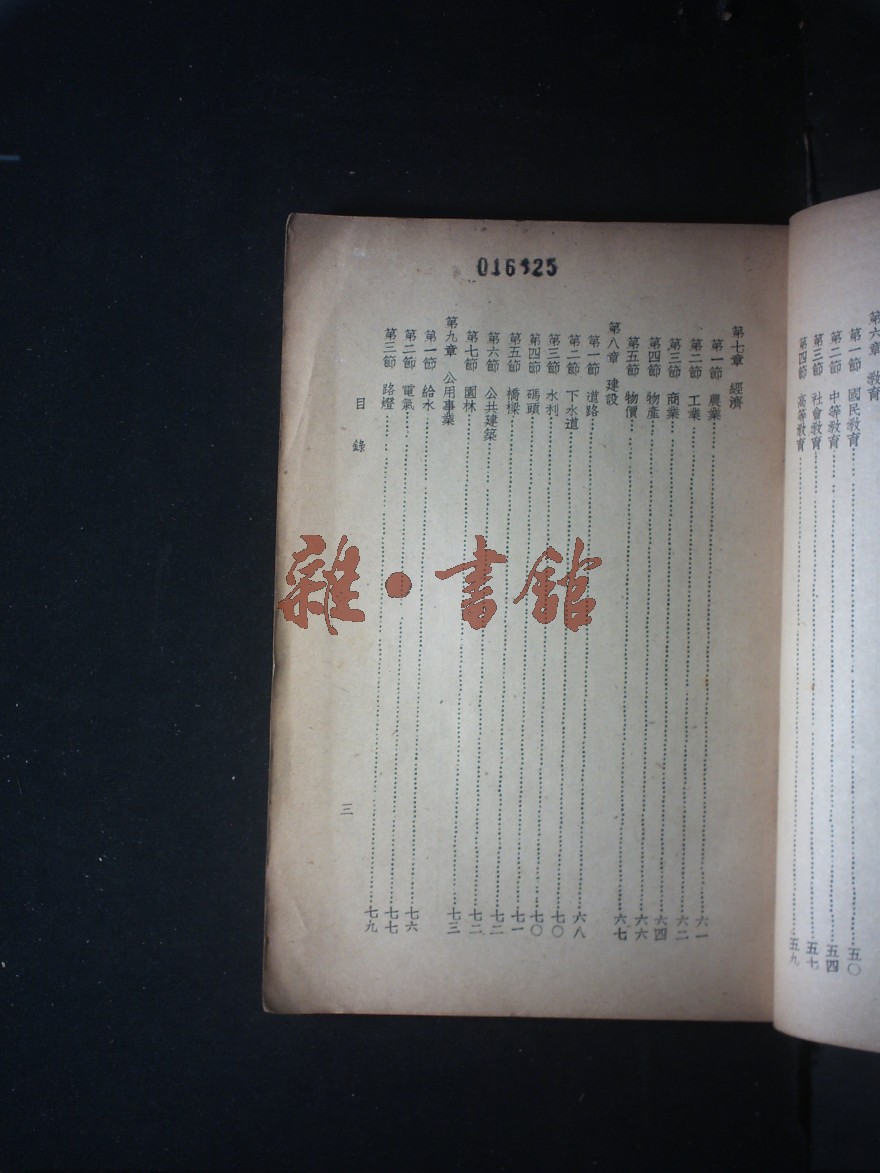 第六章 教育
第一節 國民教育……五〇
第二節 中等教育……五四
第三節 社會教育……五七
第四節 高等教育……五九
016425
第七章 經濟
第一節 農業……六一
第二節 工業……六二
第三節 商業……六四
第四節 物產……六六
第五節 物價……六七
第八章 建設
第一節 道路……六八
第二節 下水道……七〇
第三節 水利……七〇
第四節 碼頭……七一
第五節 橋樑……七二
第六節 公共建築……七二
第七節 園林……七三
第九章 公用事業
第一節 給水……七六
第二節 電氣……七七
第三節 路燈……七九
目錄
三
雜·書館